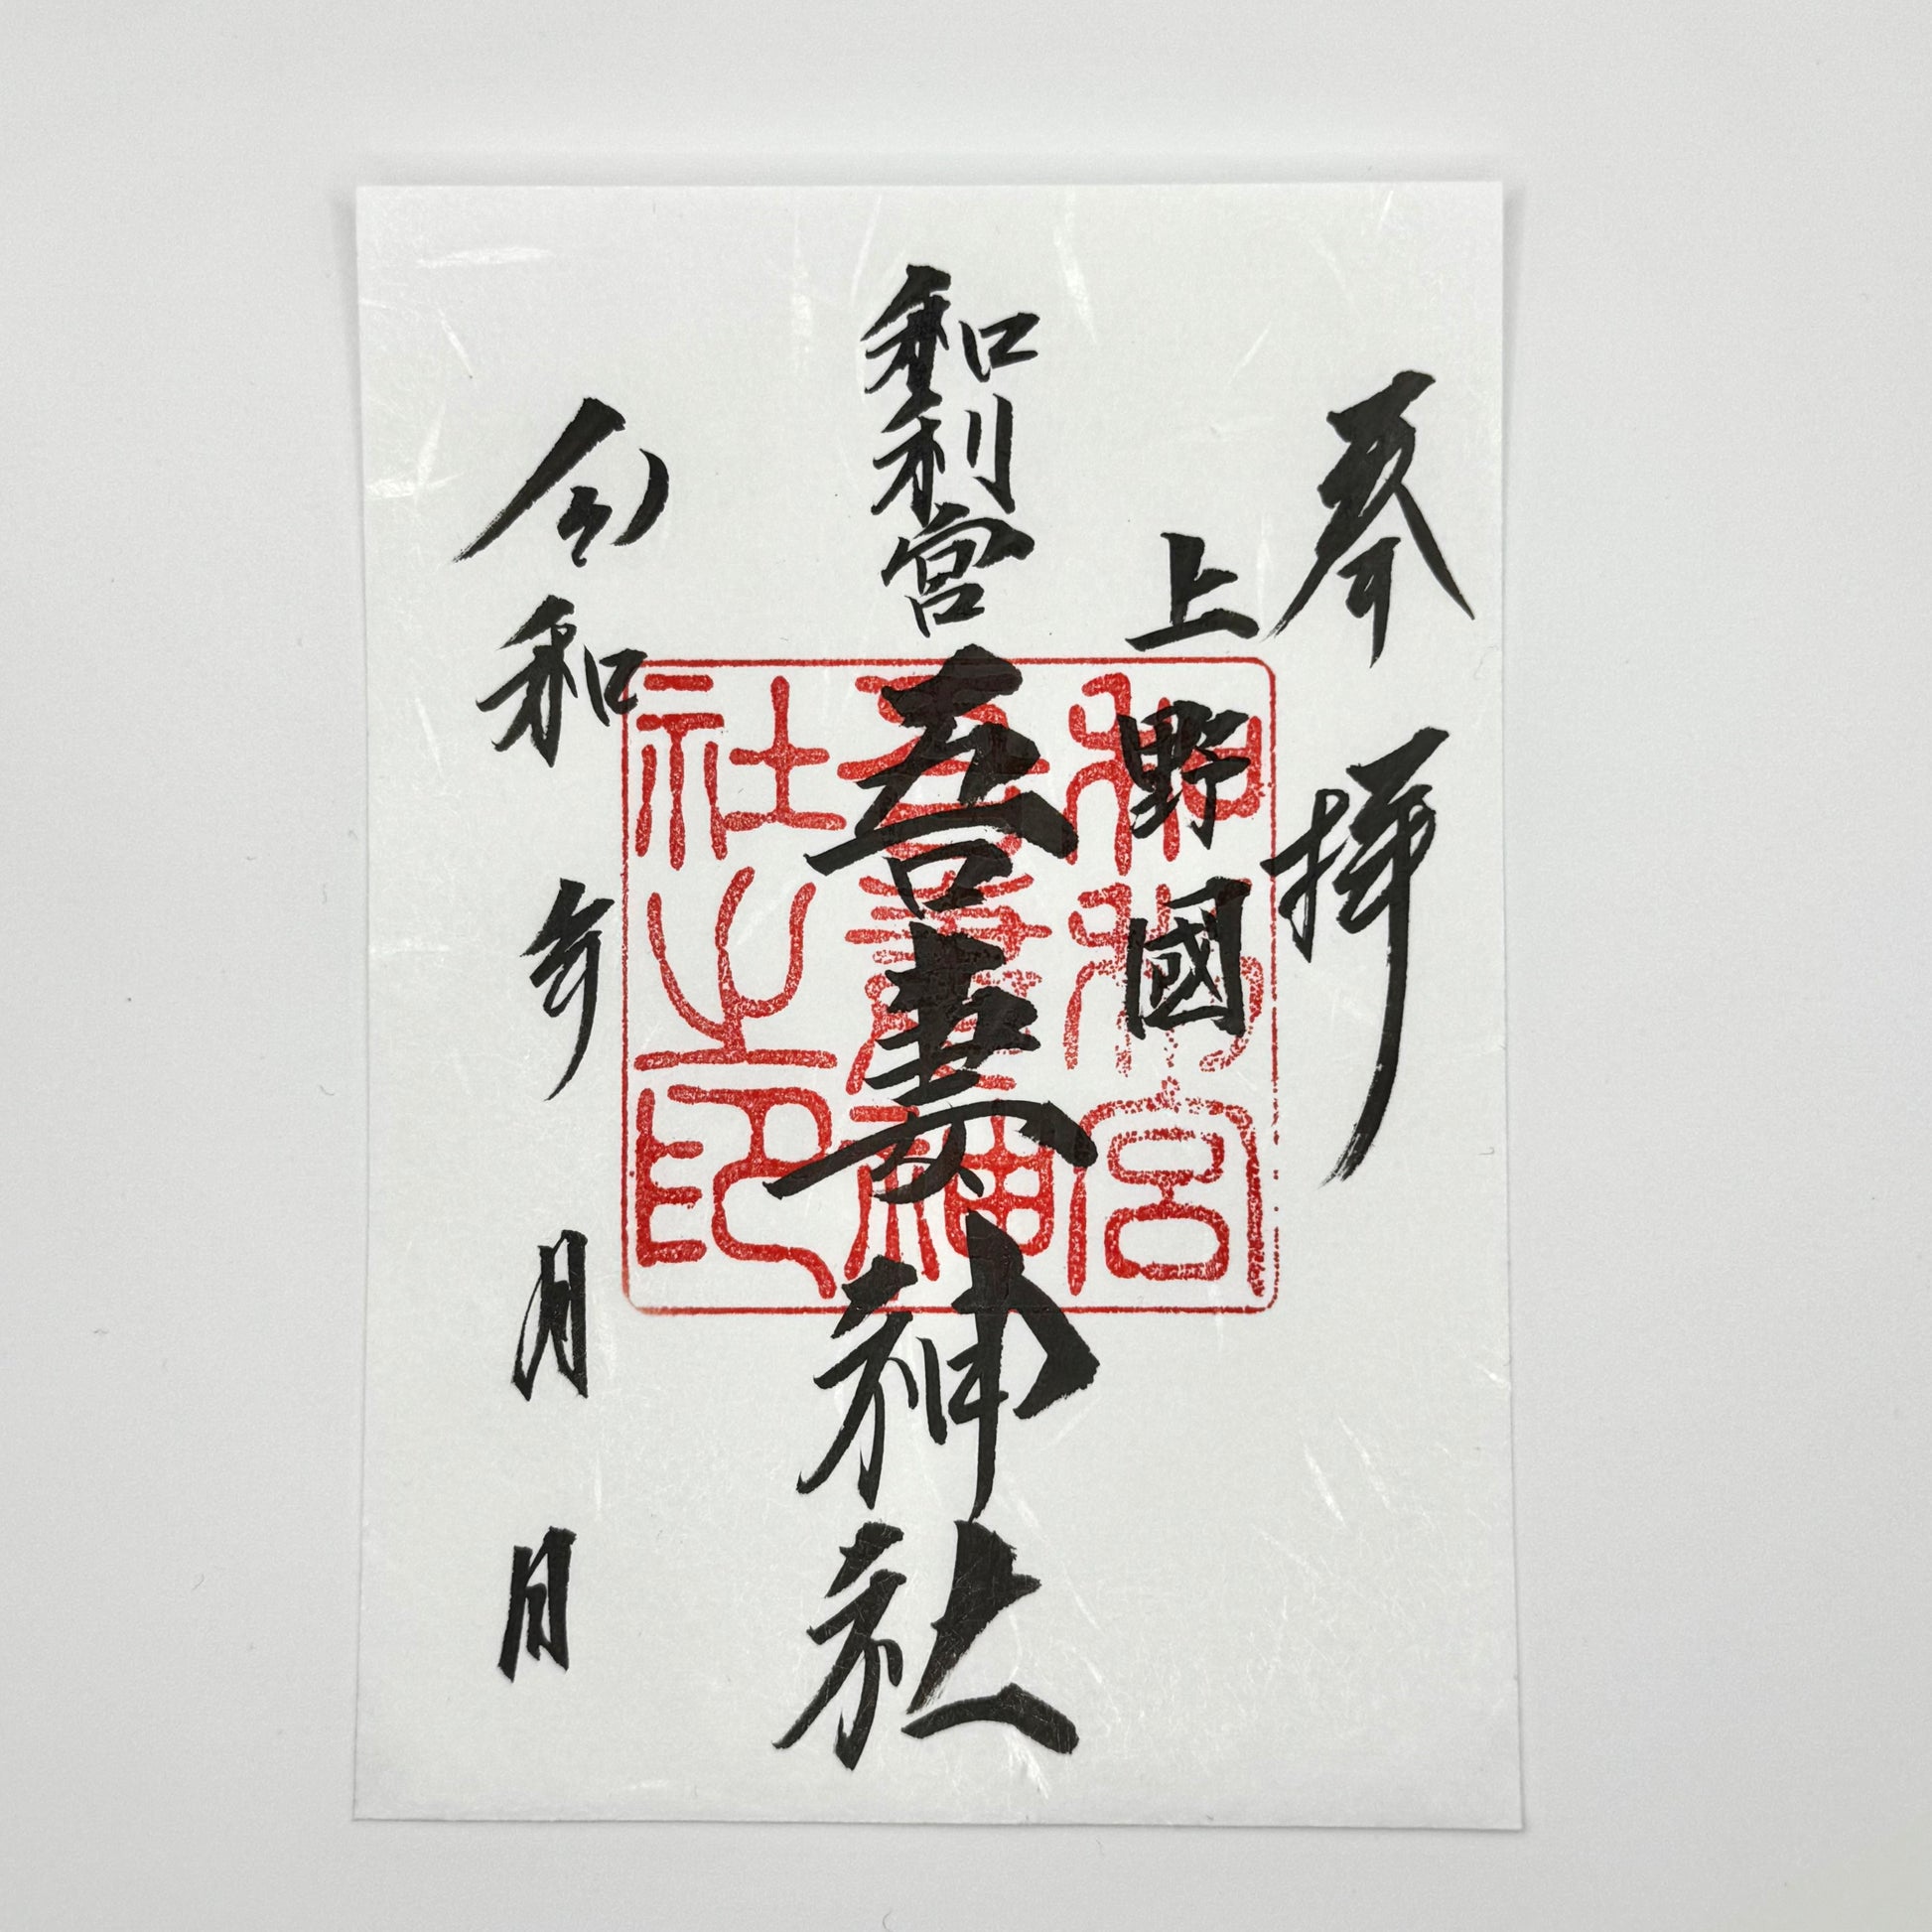 奉拝
上野國
和利宮吾妻神社
令和 年 月 日
和利宮
吾妻神
社之印